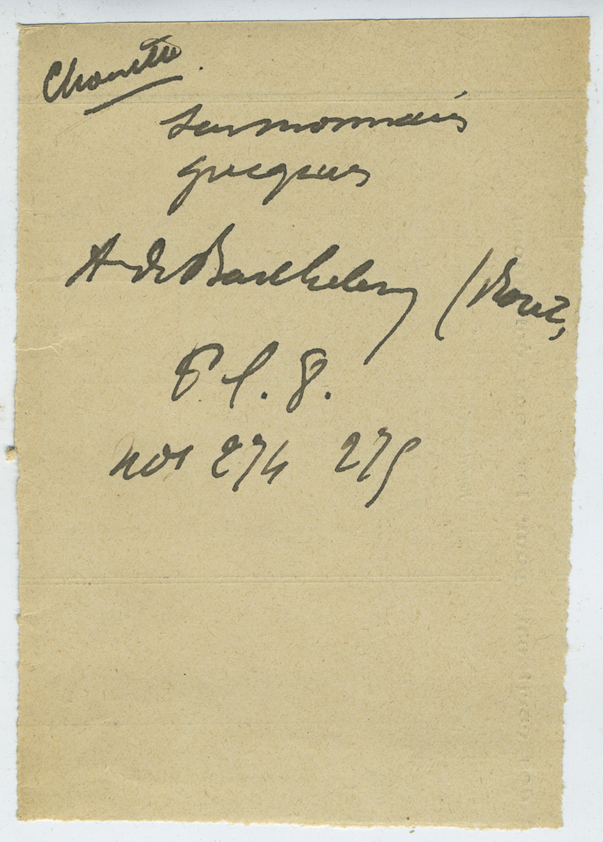 Chouette.
sur monnaies
grecques
A de Barthelemy (Roret,
Pl. 8.
nos 274 275